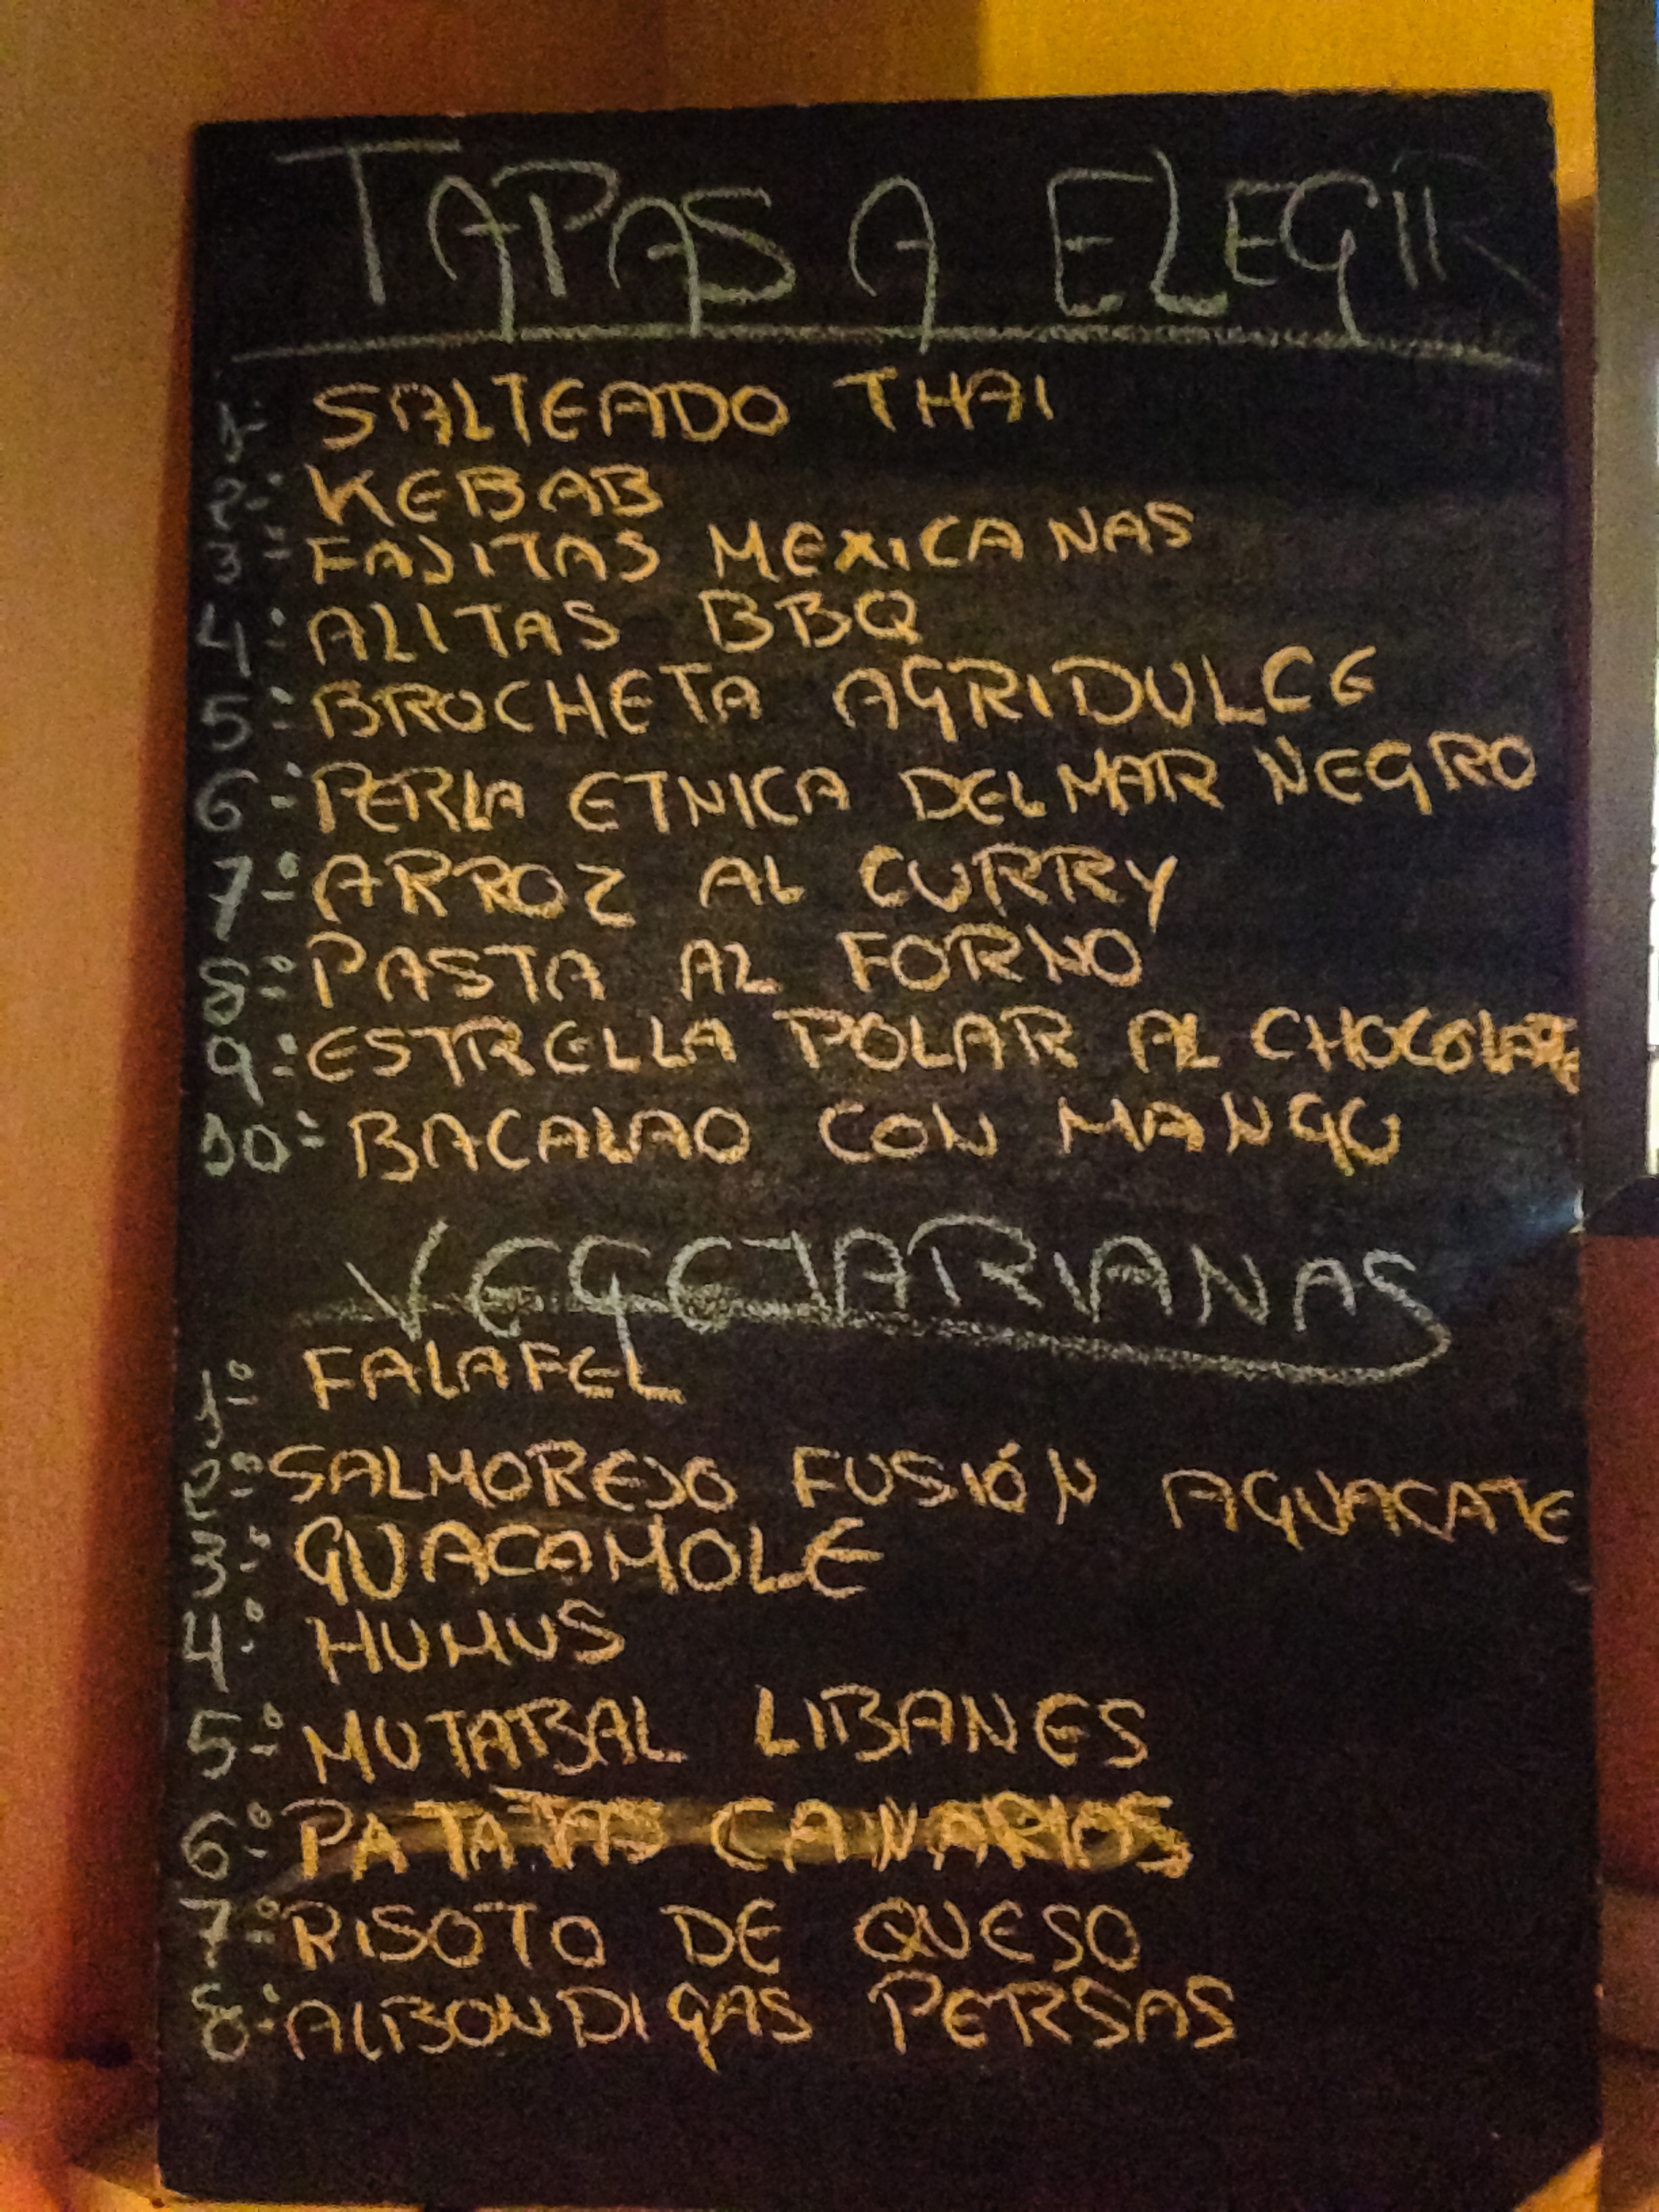 TAPAS A ELEGIR
1- SALTEADO THAI
2-: KEBAB
3-: FAJITAS MEXICANAS
4-: ALITAS BBQ
5-: BROCHETA AGRIDULCE
6-: PERLA ETNICA DEL MAR NEGRO
7-: ARROZ AL CURRY
8-: PASTA AL FORNO
9-: ESTRELLA POLAR AL CHOCOLATE
10-: BACALAO CON MANGO
VEGETARIANAS
1º FALAFEL
2º SALMOREJO FUSIÓN AGUACATE
3º GUACAMOLE
4º HUMUS
5º MUTABAL LIBANES
6º PATATAS CANARIOS
7º RISOTO DE QUESO
8º ALBONDIGAS PERSAS